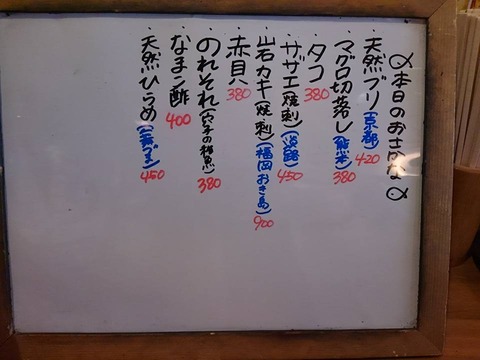 本日のおさかな
・天然ブリ(京都) 420
・マグロ切落し(熊本) 380
・タコ 380
・サザエ(焼、刺)(淡路) 450
・岩カキ(焼、刺)(福岡 おき島) 900
・赤貝 380
・のれそれ(穴子の稚魚) 380
・なまこ酢 400
・天然ひらめ 450